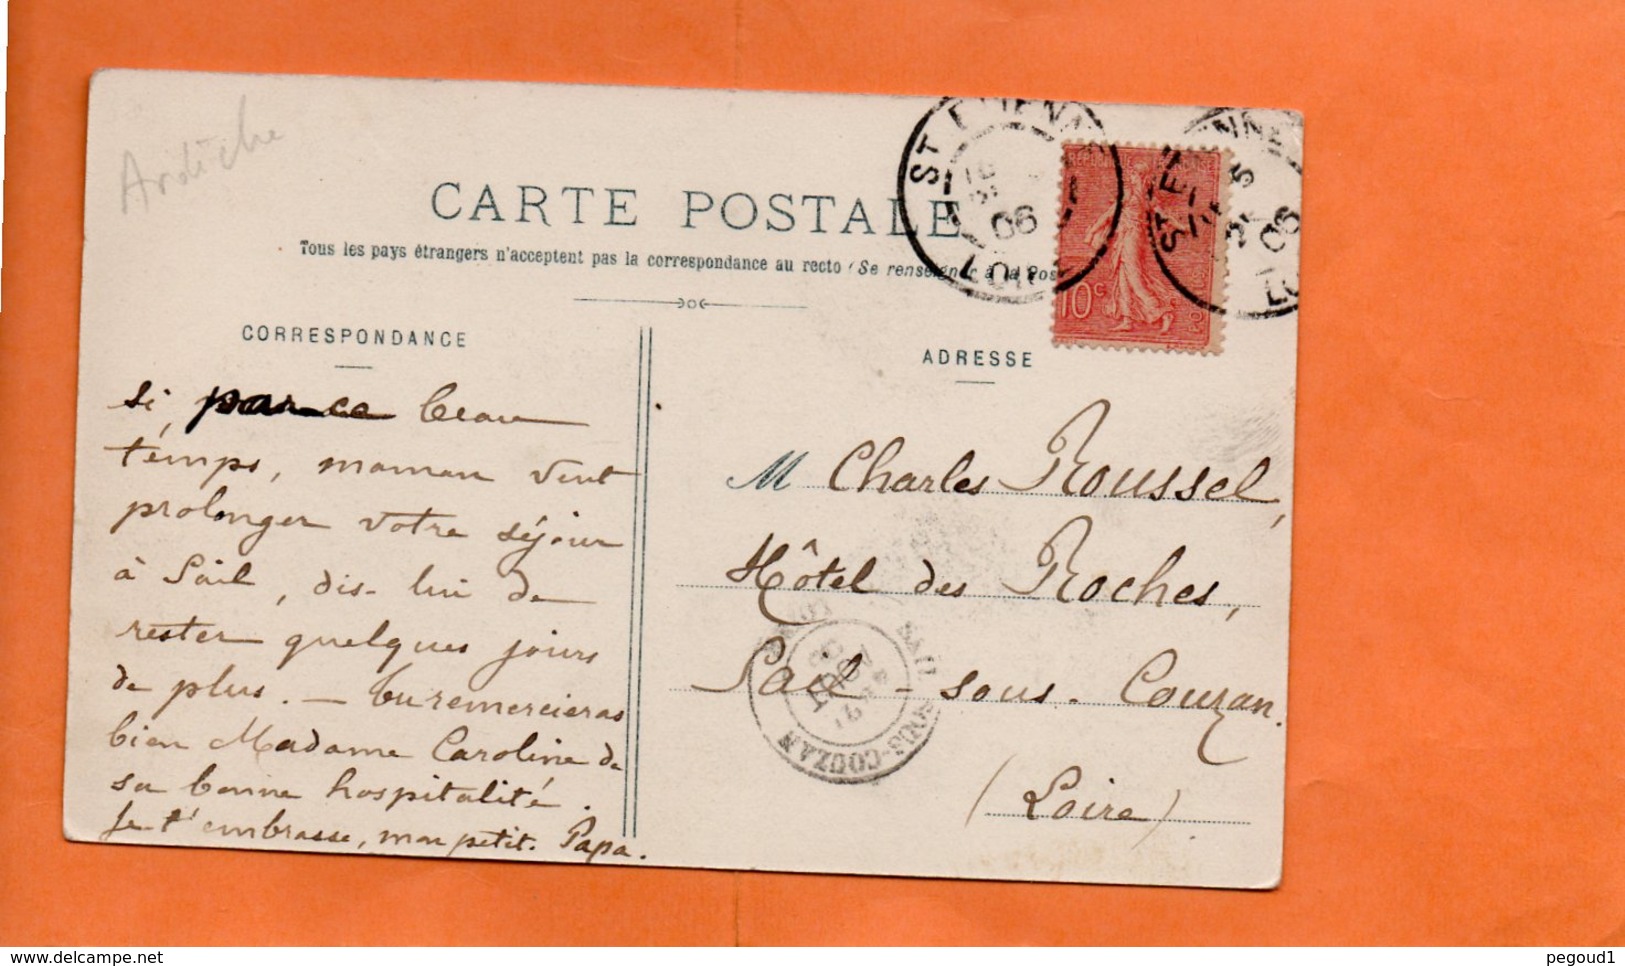 Ardèche
CARTE POSTALE
Tous les pays étrangers n'acceptent pas la correspondance au recto (Se renseigner à la Pos
CORRESPONDANCE
si, par ce beau
temps, maman veut
prolonger votre séjour
à Sail, dis-lui de
rester quelques jours
de plus. — tu remercieras
bien Madame Caroline de
sa bonne hospitalité.
Je t'embrasse, mon petit. Papa.
ADRESSE
M Charles Roussel,
Hôtel des Roches,
Sail-sous-Couzan.
(Loire)
ST ETIENNE
06
LOIRE
REPUBLIQUE FRANÇAISE
10c
ST ETIENNE
5
06
LO
SAIL SOUS-COUZAN
LOIRE
delcampe.net
pegoud1